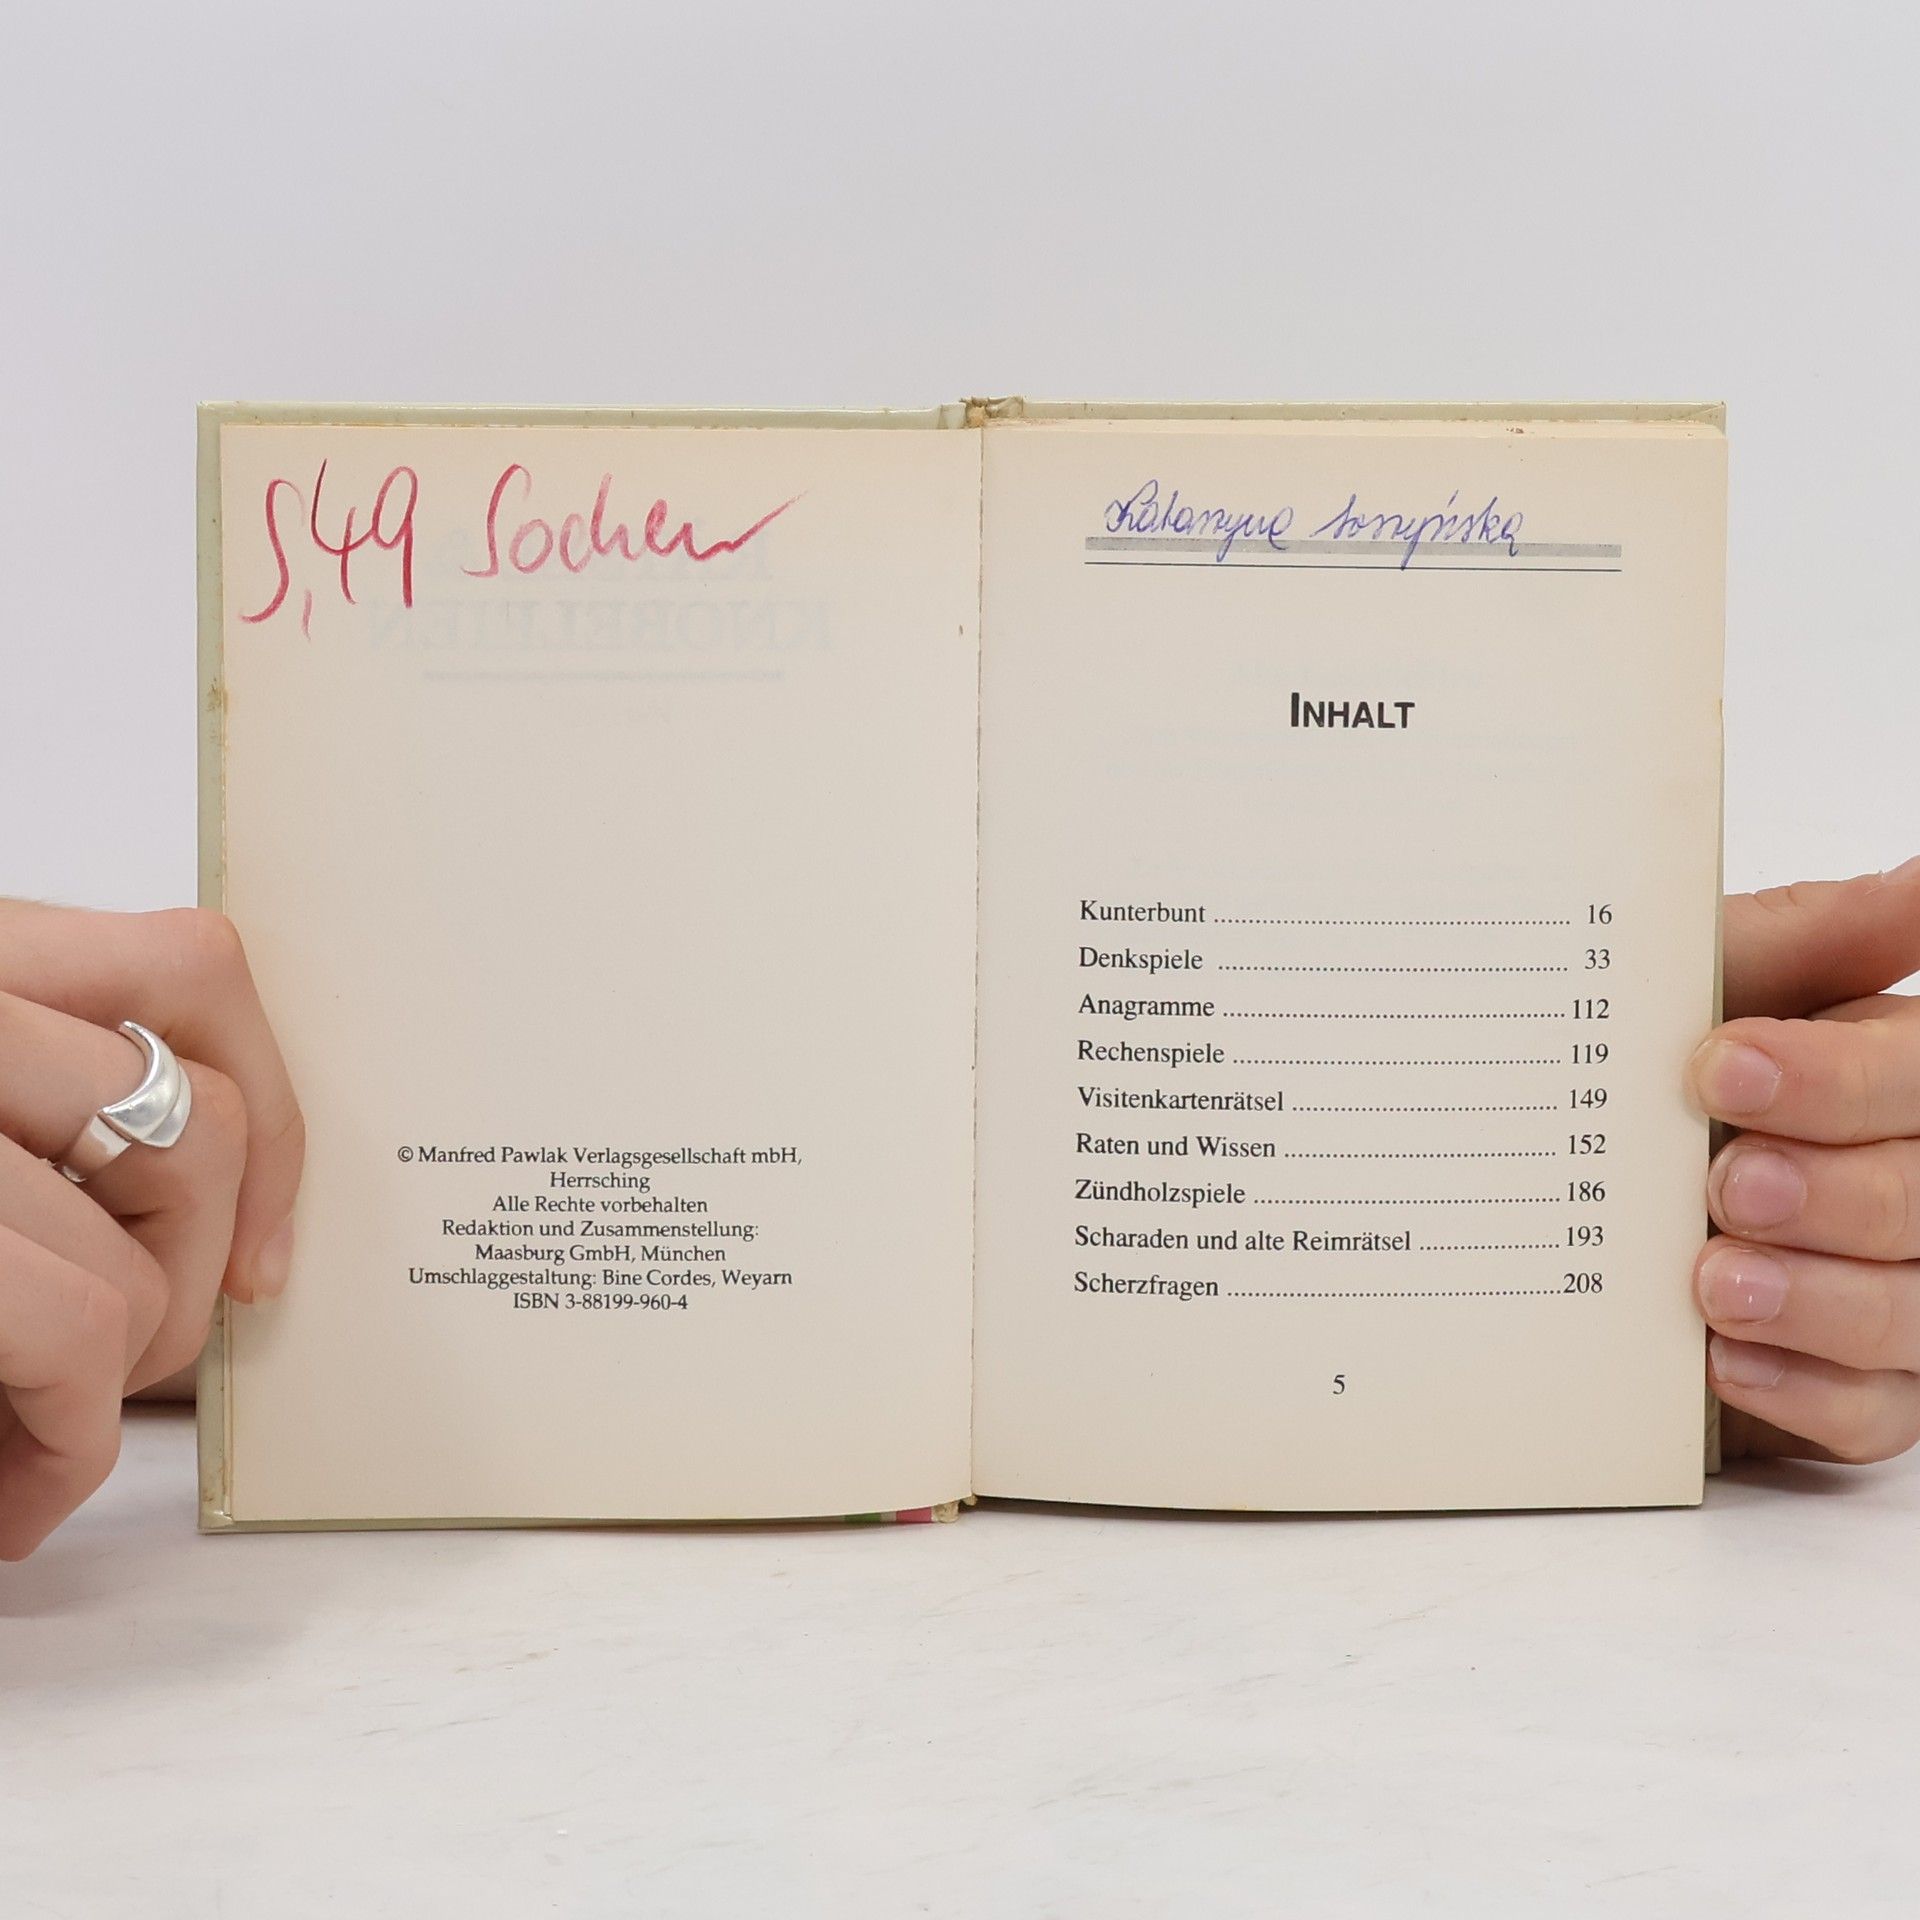 © Manfred Pawlak Verlagsgesellschaft mbH,
Herrsching
Alle Rechte vorbehalten
Redaktion und Zusammenstellung:
Maasburg GmbH, München
Umschlaggestaltung: Bine Cordes, Weyarn
ISBN 3-88199-960-4
INHALT
Kunterbunt ........ 16
Denkspiele ........ 33
Anagramme ........ 112
Rechenspiele ........ 119
Visitenkartenrätsel ........ 149
Raten und Wissen ........ 152
Zündholzspiele ........ 186
Scharaden und alte Reimrätsel ........ 193
Scherzfragen ........ 208
5